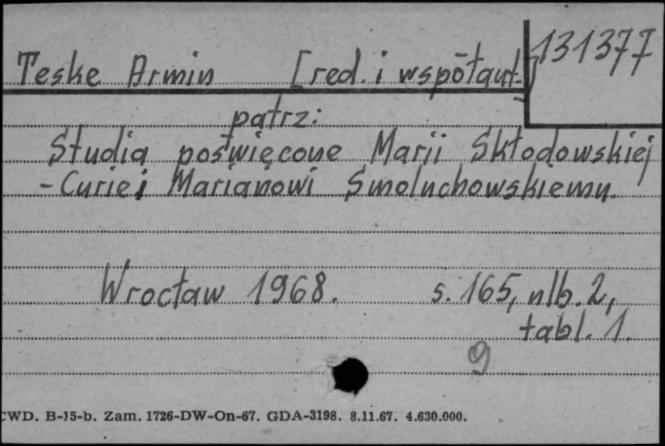 131377
Teske Armin [red. i współaut.]
patrz:
Studia poświęcone Marii Skłodowskiej
-Curie i Marianowi Smoluchowskiemu.
Wrocław 1968. s. 165, nlb. 2,
tabl. 1.
9
CWD. B-15-b. Zam. 1726-DW-On-67. GDA-3198. 8.11.67. 4.630.000.